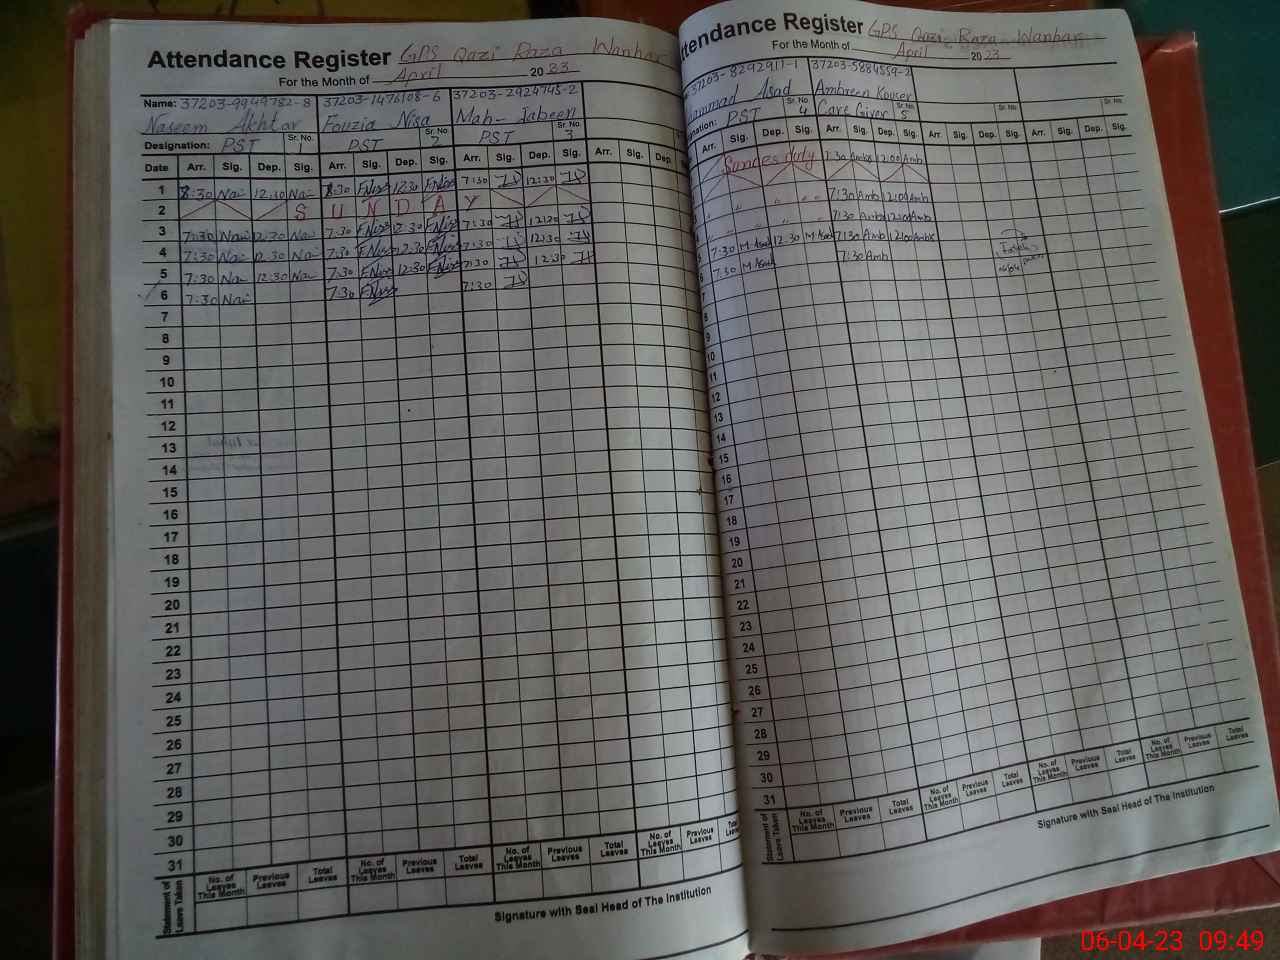 Attendance Register GPS Qazi Raza Wanhar
For the Month of April 2023
Name: 37203-9949782-8 37203-1476108-6 37203-2924745-2
Naseem Akhtar Fouzia Nisa Mah-Jabeen
Designation: PST Sr. No. 1 PST Sr. No. 2 PST Sr. No. 3
Date Arr. Sig. Dep. Sig. Arr. Sig. Dep. Sig. Arr. Sig. Dep. Sig. Arr. Sig. Dep.
1 8:30 Nas 12:30 Nas 8:30 FNisa 12:30 FNisa 7:30 12:30
2 SUNDAY
3 7:30 Nas 12:30 Nas 7:30 FNisa 12:30 FNisa 7:30 12:30
4 7:30 Nas 12:30 Nas 7:30 FNisa 12:30 FNisa 7:30 12:30
5 7:30 Nas 12:30 Nas 7:30 FNisa 12:30 FNisa 7:30 12:30
6 7:30 Nas 7:30 FNisa 7:30
7
8
9
10
11
12
13
14
15
16
17
18
19
20
21
22
23
24
25
26
27
28
29
30
31
Statement of Leave Taken
No. of Leaves This Month Previous Leaves Total Leaves No. of Leaves This Month Previous Leaves Total Leaves No. of Leaves This Month Previous Leaves Total Leaves No. of Leaves This Month Previous Leaves Total
Signature with Seal Head of The Institution
ttendance Register GPS Qazi Raza Wanhar
For the Month of April 2023
37203-8292911-1 37203-5884559-2
ammad Asad Ambreen Kouser
nation: PST Sr. No. 4 Care Giver Sr. No. 5 Sr. No. Sr. No.
Arr. Sig. Dep. Sig. Arr. Sig. Dep. Sig. Arr. Sig. Dep. Sig. Arr. Sig. Dep. Sig. Arr. Sig. Dep. Sig.
duty 7:30 Amb 12:00 Amb
7:30 Amb 12:00 Amb
7:30 Amb 12:00 Amb
5 7:30 M.Asad 12:30 M.Asad 7:30 Amb 12:00 Amb
6 7:30 M.Asad 7:30 Amb
7
8
9
10
11
12
13
14
15
16
17
18
19
20
21
22
23
24
25
26
27
28
29
30
31
Statement of Leave Taken
No. of Leaves This Month Previous Leaves Total Leaves No. of Leaves This Month Previous Leaves Total Leaves No. of Leaves This Month Previous Leaves Total Leaves No. of Leaves This Month Previous Leaves Total Leaves
Signature with Seal Head of The Institution
06-04-23 09:49